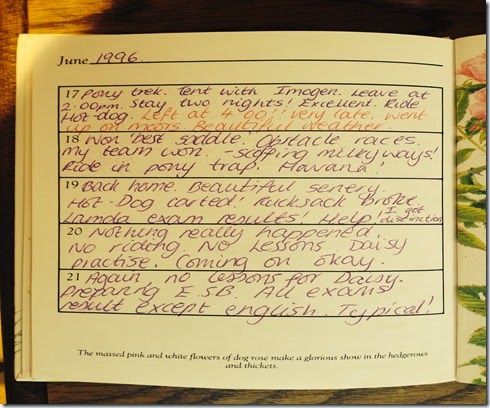 June 1996.
17 Pony trek. Tent with Imogen. Leave at
2.00pm. Stay two nights! Excellent. Ride
Hot-dog. Left at 4'00,! very late. Went
up on moors. Beautiful weather.
18 Won best saddle. Obstacle races.
my team won. - scoffing milkyways!
Ride in pony trap! Havana!
19 Back home. Beautiful senery.
Hot-Dog carted! Rucksack broke.
Lamda exam results! Help! I got distinction
20 Nothing really happened.
No riding. No lessons. Daisy
practise. Coming on okay.
21 Again, no lessons for Daisy.
preparing E.S.B. All exams
result except english. Typical!
The massed pink and white flowers of dog rose make a glorious show in the hedgerows
and thickets.